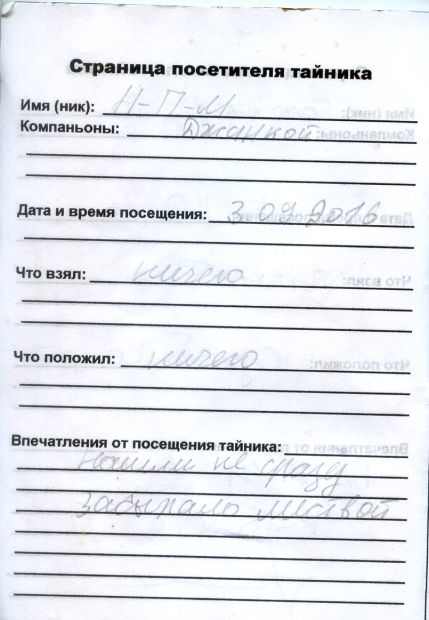 Страница посетителя тайника
Имя (ник): Н-П-М
Компаньоны: Джанкой
Дата и время посещения: 3 09 2016
Что взял: ничего
Что положил: ничего
Впечатления от посещения тайника:
Нашли не сразу
Забирало листвой